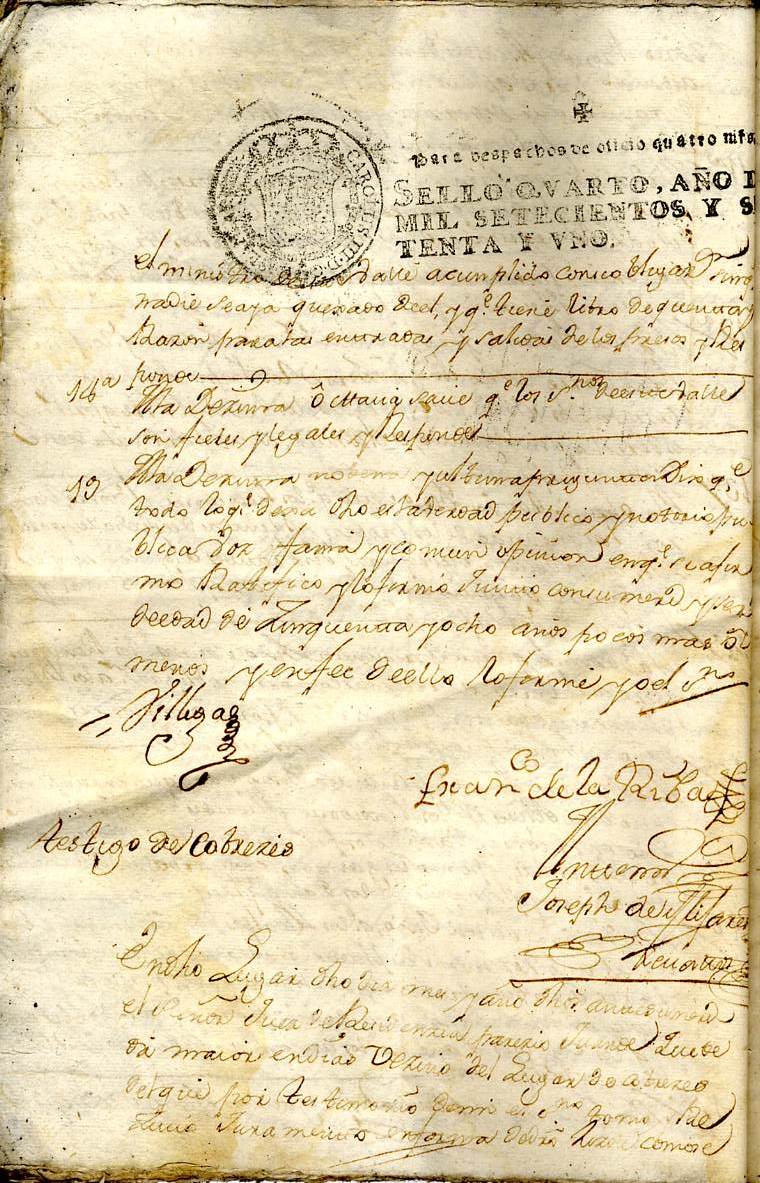 CAROLUS III D. G.
Para despachos de oficio quatro mrs
SELLO QVARTO, AÑO D
MIL SETECIENTOS Y S
TENTA Y VNO.
el ministro de este valle a cumplido con su obligaz.n sin q.
nadie se aya quexado de el, y q.e tiene libro de quenta y
Razon para las entradas y salidas de los presos y Res
ponde
18a
A la Dezima Octtava save q.e los s.nos de este valle
son fieles y legales y Responde
19
A la Dezima nobena y ultima pregunta Dixo q.e
todo lo q.e deva dho es la verdad publico y notorio pu
blica voz fama y comun opinion en q.e se afir
mo Ratifico y lo firmo Junto con su merd y ser
de edad de Zinquenta y ocho años poco mas o
menos y en fee de ello lo firme yo el s.no
Villegas
Fran.co de la Riba
Ante mi
Joseph de
testigo de Cobrezes
En dho Lugar dho dia mes y año dhos ante su merd
el Señor Juez de Residenzia parezio Juan de
maior en dias Vezino del Lugar de Cobrezes
del que por testimonio de mi el s.no tomo
Juramento en forma de dro hizo como se